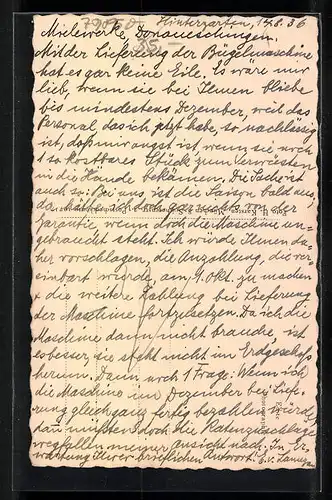 Hinterzarten, 14.8.56
Mielewerke, Donaueschingen.
85.-
Mit der Lieferung der Bügelmaschine
hat es gar keine Eile. Es wäre mir
lieb, wenn sie bei Ihnen bliebe
bis mindestens Dezember, weil das
Personal, das ich jetzt habe, so nachlässig
ist, daß mir angst ist, wenn sie noch
1 so kostbares Stück zum
in die Hände bekämen. Die Sache ist
auch so: Bei uns ist die Saison bald aus,
da hätte ich ja gar nichts von der
Garantie, wenn doch die Maschine un-
gebraucht steht. Ich würde Ihnen da-
her vorschlagen, die Anzahlung, die ver-
einbart wurde, am 1. Okt. zu machen
+ die weitere Zahlung bei Lieferung
der Maschine fortzusetzen. Da ich die
Maschine dann nicht brauche, ist
es besser, sie steht nicht im Erdgeschoß
herum. Dann noch 1 Frage: Wenn ich
die Maschine im Dezember bei Liefe-
rung gleich ganz fertig bezahlen würde,
dann müßten doch die Ratenzuschläge
wegfallen meiner Ansicht nach. In Er-
wartung Ihrer erfreulichen Antwort